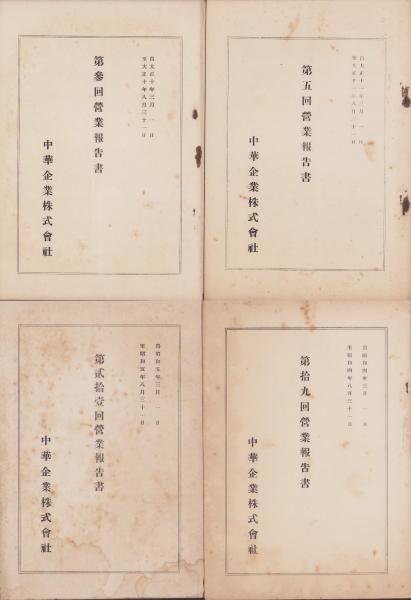 自大正十年三月一日
至大正十年八月三十一日
第參回營業報告書
中華企業株式會社
自大正十一年三月一日
至大正十一年八月三十一日
第五回營業報告書
中華企業株式會社
自昭和五年三月一日
至昭和五年八月三十一日
第貳拾壹回營業報告書
中華企業株式會社
自昭和四年三月一日
至昭和四年八月三十一日
第拾九回營業報告書
中華企業株式會社